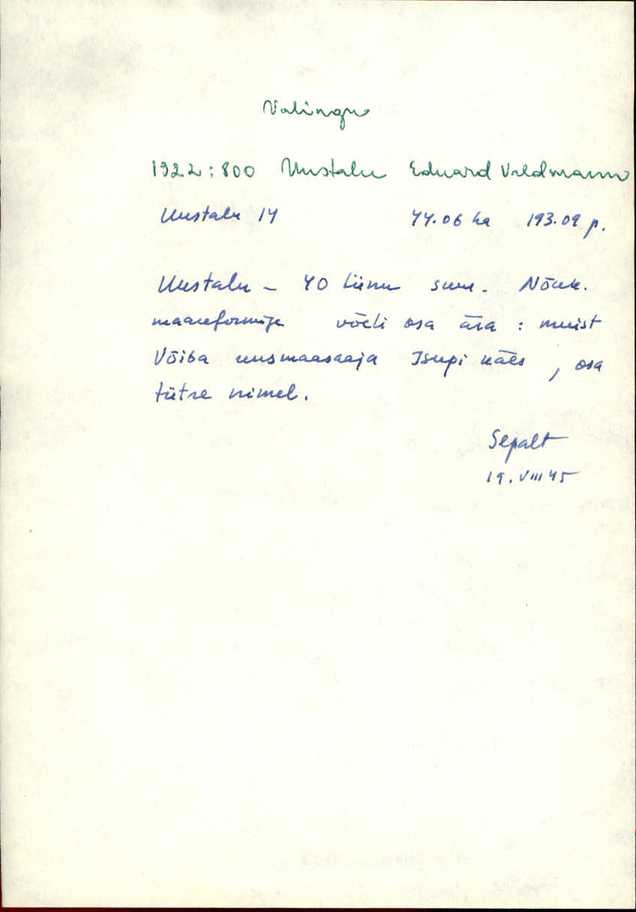 Valingu
1922:800 Uustalu Eduard Valdmann
Uustalu 14 44.06 ha 193.09 p.
Uustalu – 40 tiinu suur. Nõuk.
maareformiga võeti osa ära : muist
Võiba uusmaasaaja Isupi käes, osa
tütre nimel.
Sepalt
19. VIII 45